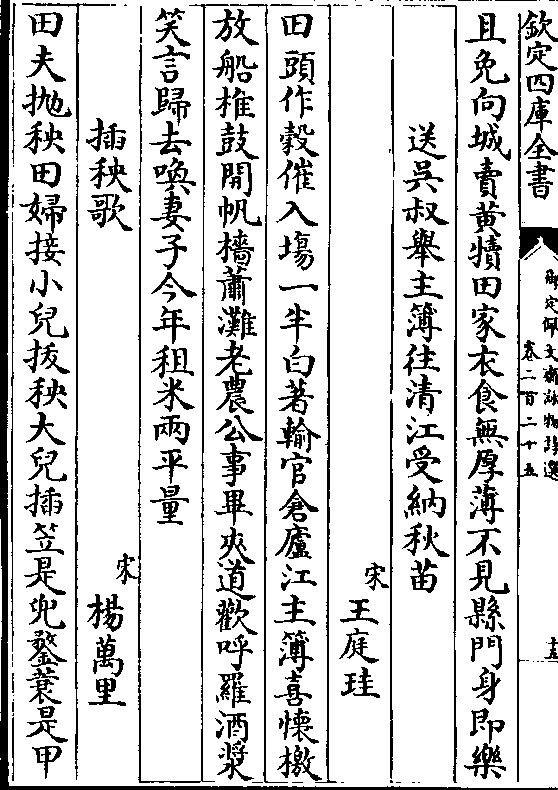 欽定四庫全書
御定佩文齋詠物詩選
卷二百二十五
十五
且免向城賣黃犢田家衣食無厚薄不見縣門身即樂
送吳叔舉主簿往清江受納秋苗
宋 王庭珪
田頭作穀催入塲一半白著輸官倉廬江主簿喜懷檄
放船椎鼓開帆檣蕭灘老農公事畢夾道歡呼羅酒漿
笑言歸去喚妻子今年租米兩平量
插秧歌
宋 楊萬里
田夫拋秧田婦接小兒拔秧大兒插笠是兜鍪蓑是甲